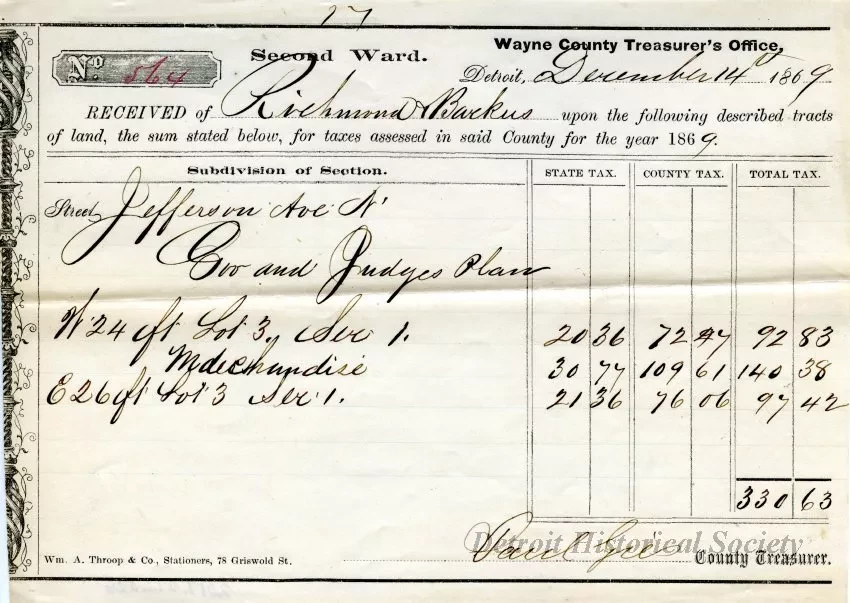 17
Wayne County Treasurer's Office,
No 564 Second Ward. Detroit, December 14th 1869
RECEIVED of Richmond & Backus upon the following described tracts
of land, the sum stated below, for taxes assessed in said County for the year 1869.
Subdivision of Section. STATE TAX. COUNTY TAX. TOTAL TAX.
Street Jefferson Ave N'
Gov and Judges Plan
W 24 ft Lot 3, Sec 1. 20 36 72 47 92 83
Mdechandise 30 77 109 61 140 38
E 26 ft Lot 3 Sec 1. 21 36 76 06 97 42
330 63
Detroit Historical Society
Paul County Treasurer.
Wm. A. Throop & Co., Stationers, 78 Griswold St.